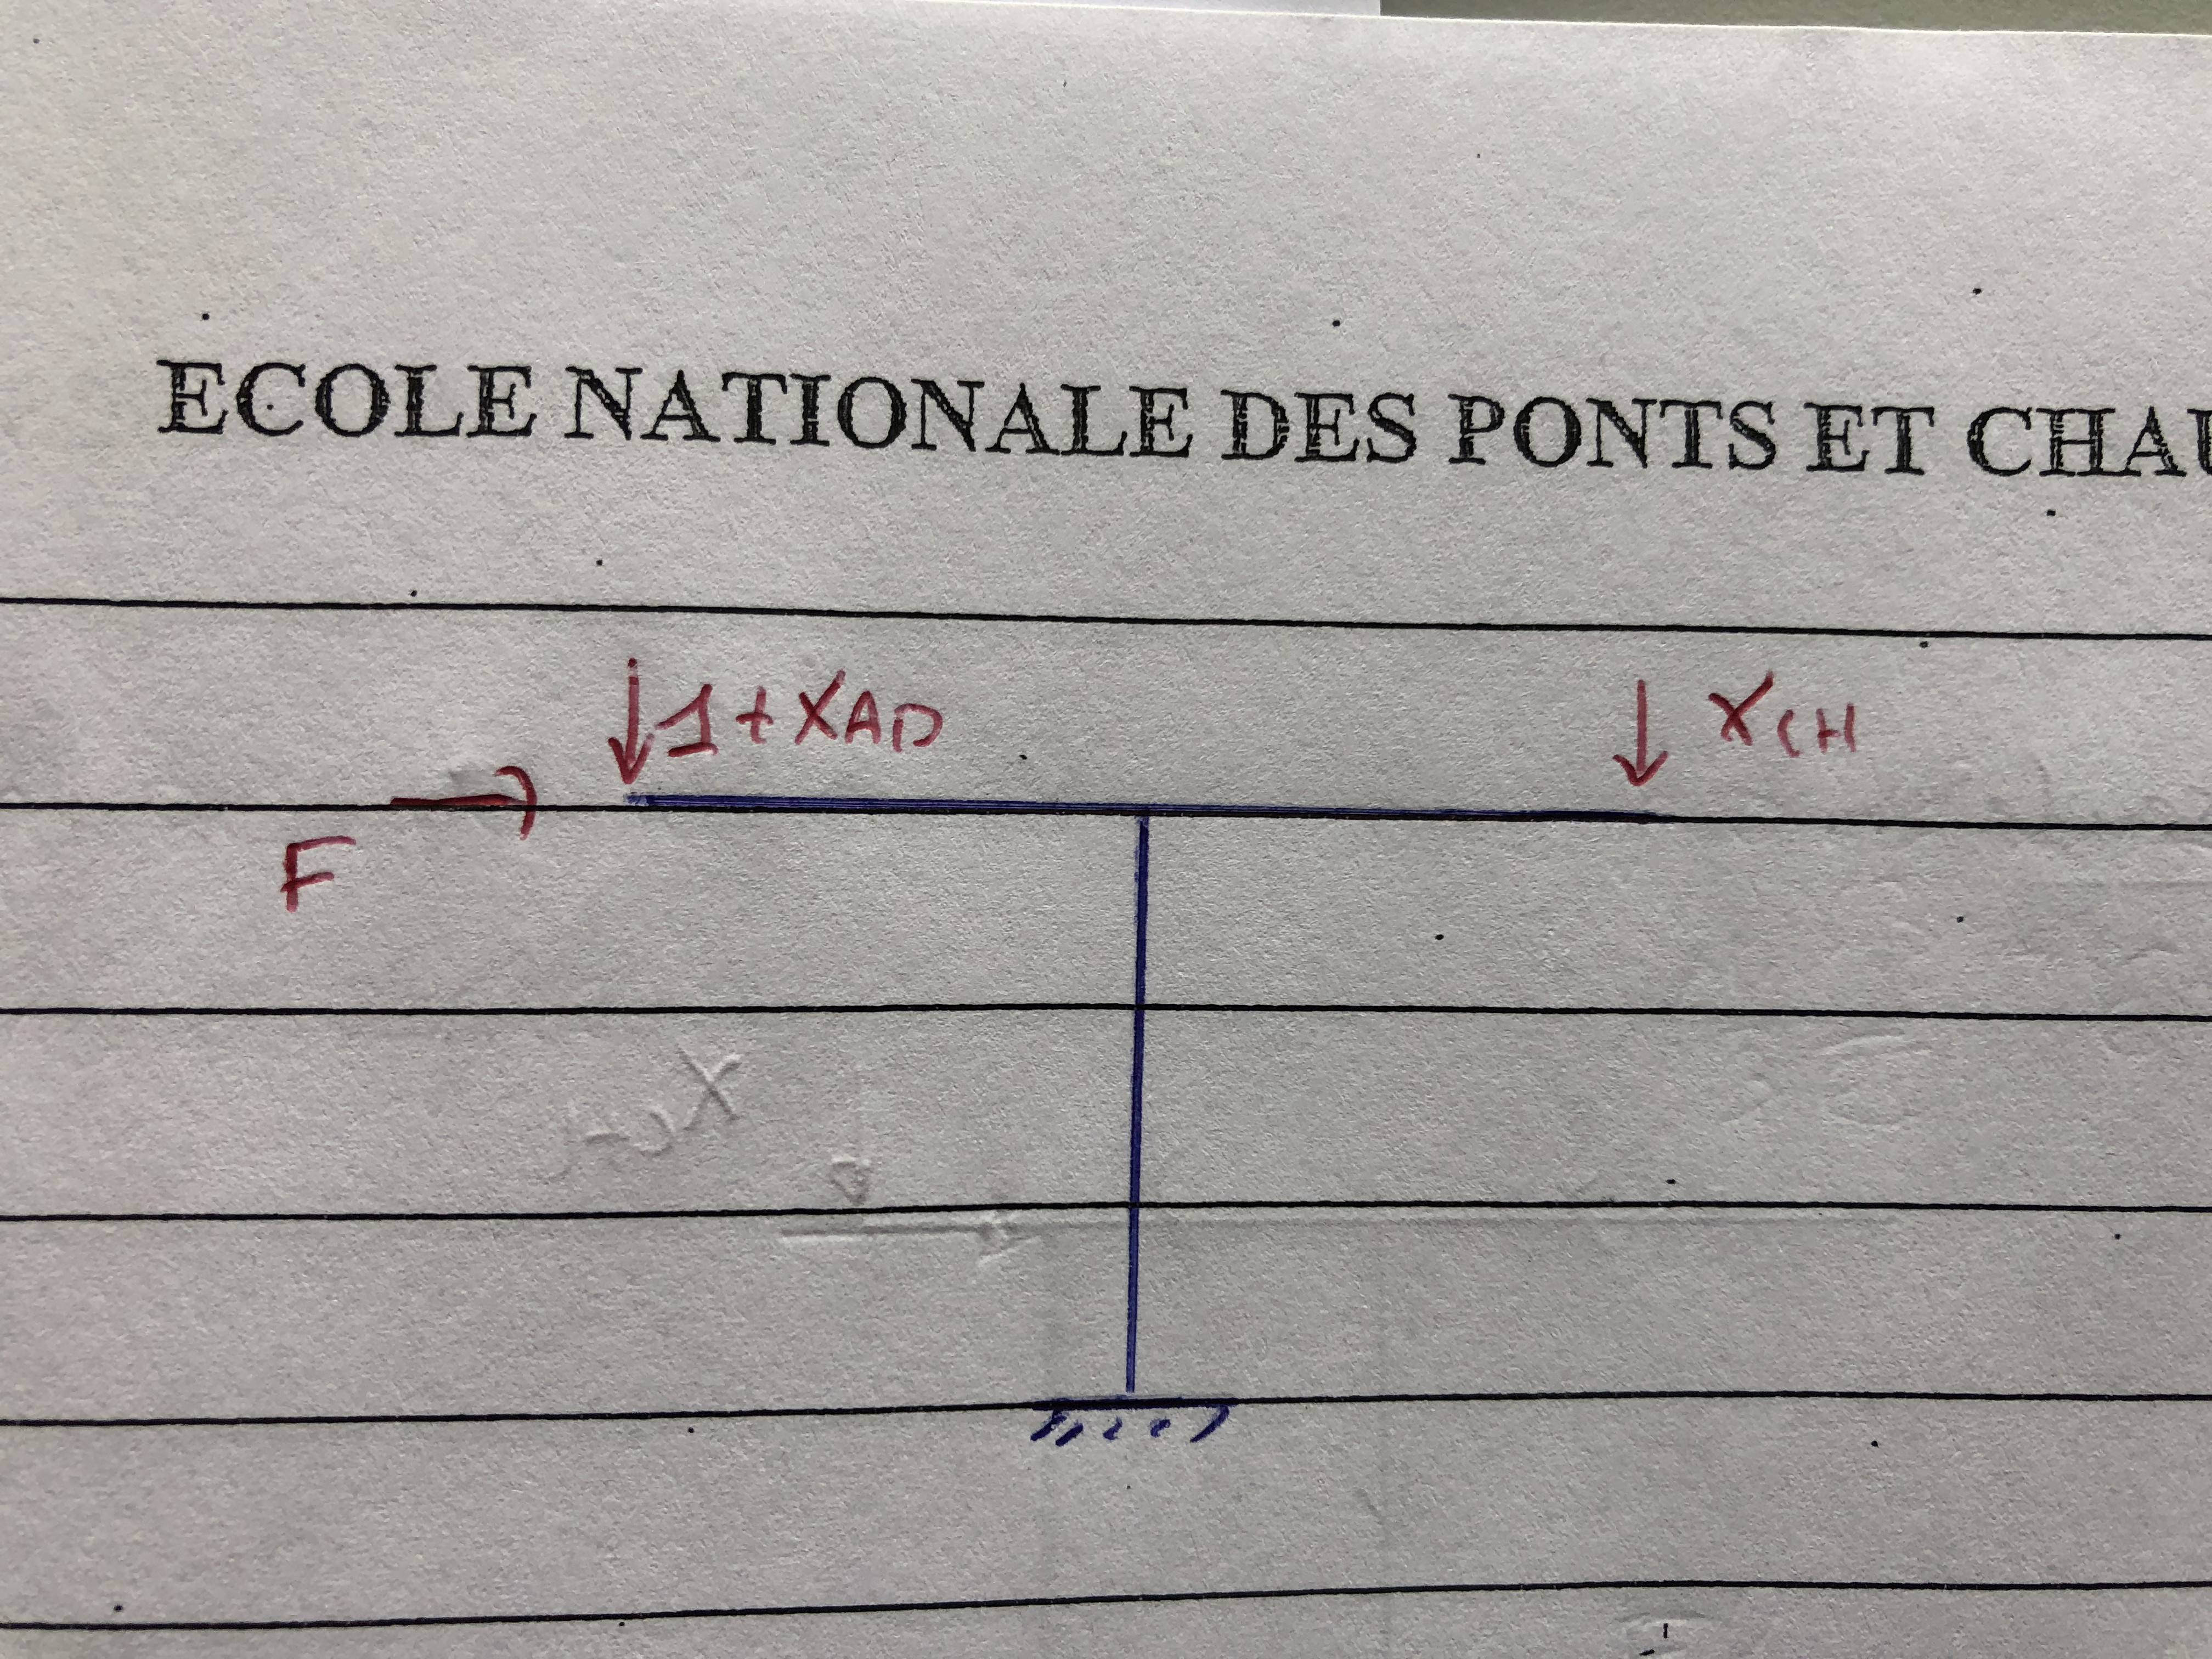 ECOLE NATIONALE DES PONTS ET CHAU
1+XAD
XCH
F